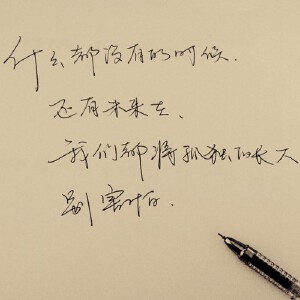 什么都没有的时候.
还有未来在.
我们都将孤独的长大
别害怕.